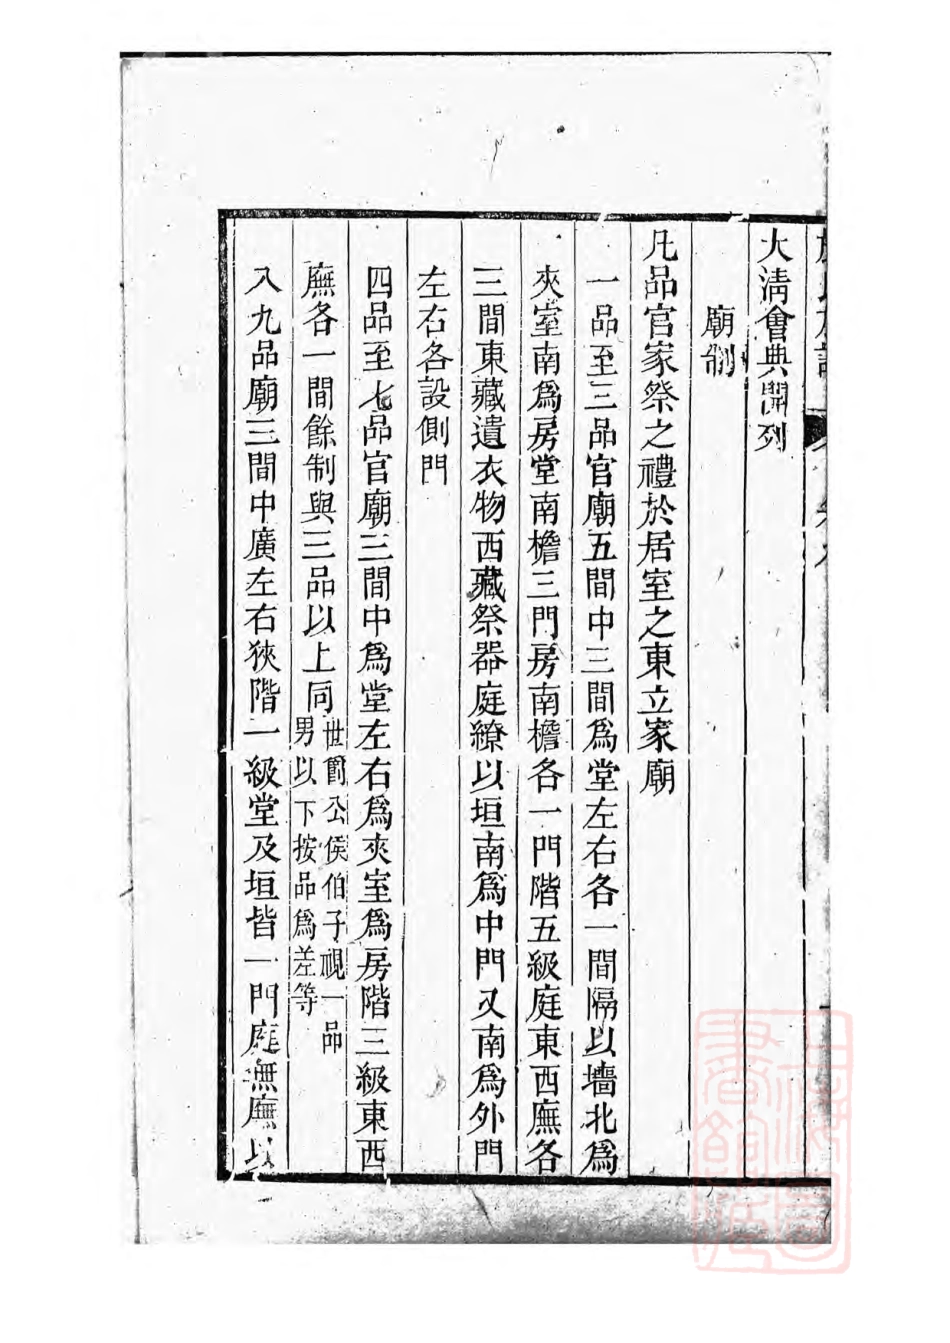 大淸會典開列
廟制
凡品官家祭之禮於居室之東立家廟
一品至三品官廟五間中三間爲堂左右各一間隔以墻北爲
夾室南爲房堂南檐三門房南檐各一門階五級庭東西廡各
三間東藏遺衣物西藏祭器庭繚以垣南爲中門又南爲外門
左右各設側門
四品至七品官廟三間中爲堂左右爲夾室爲房階三級東西
廡各一間餘制與三品以上同世爵公侯伯子視一品男以下按品爲差等
八九品廟三間中廣左右狹階一級堂及垣皆一門庭無廡以